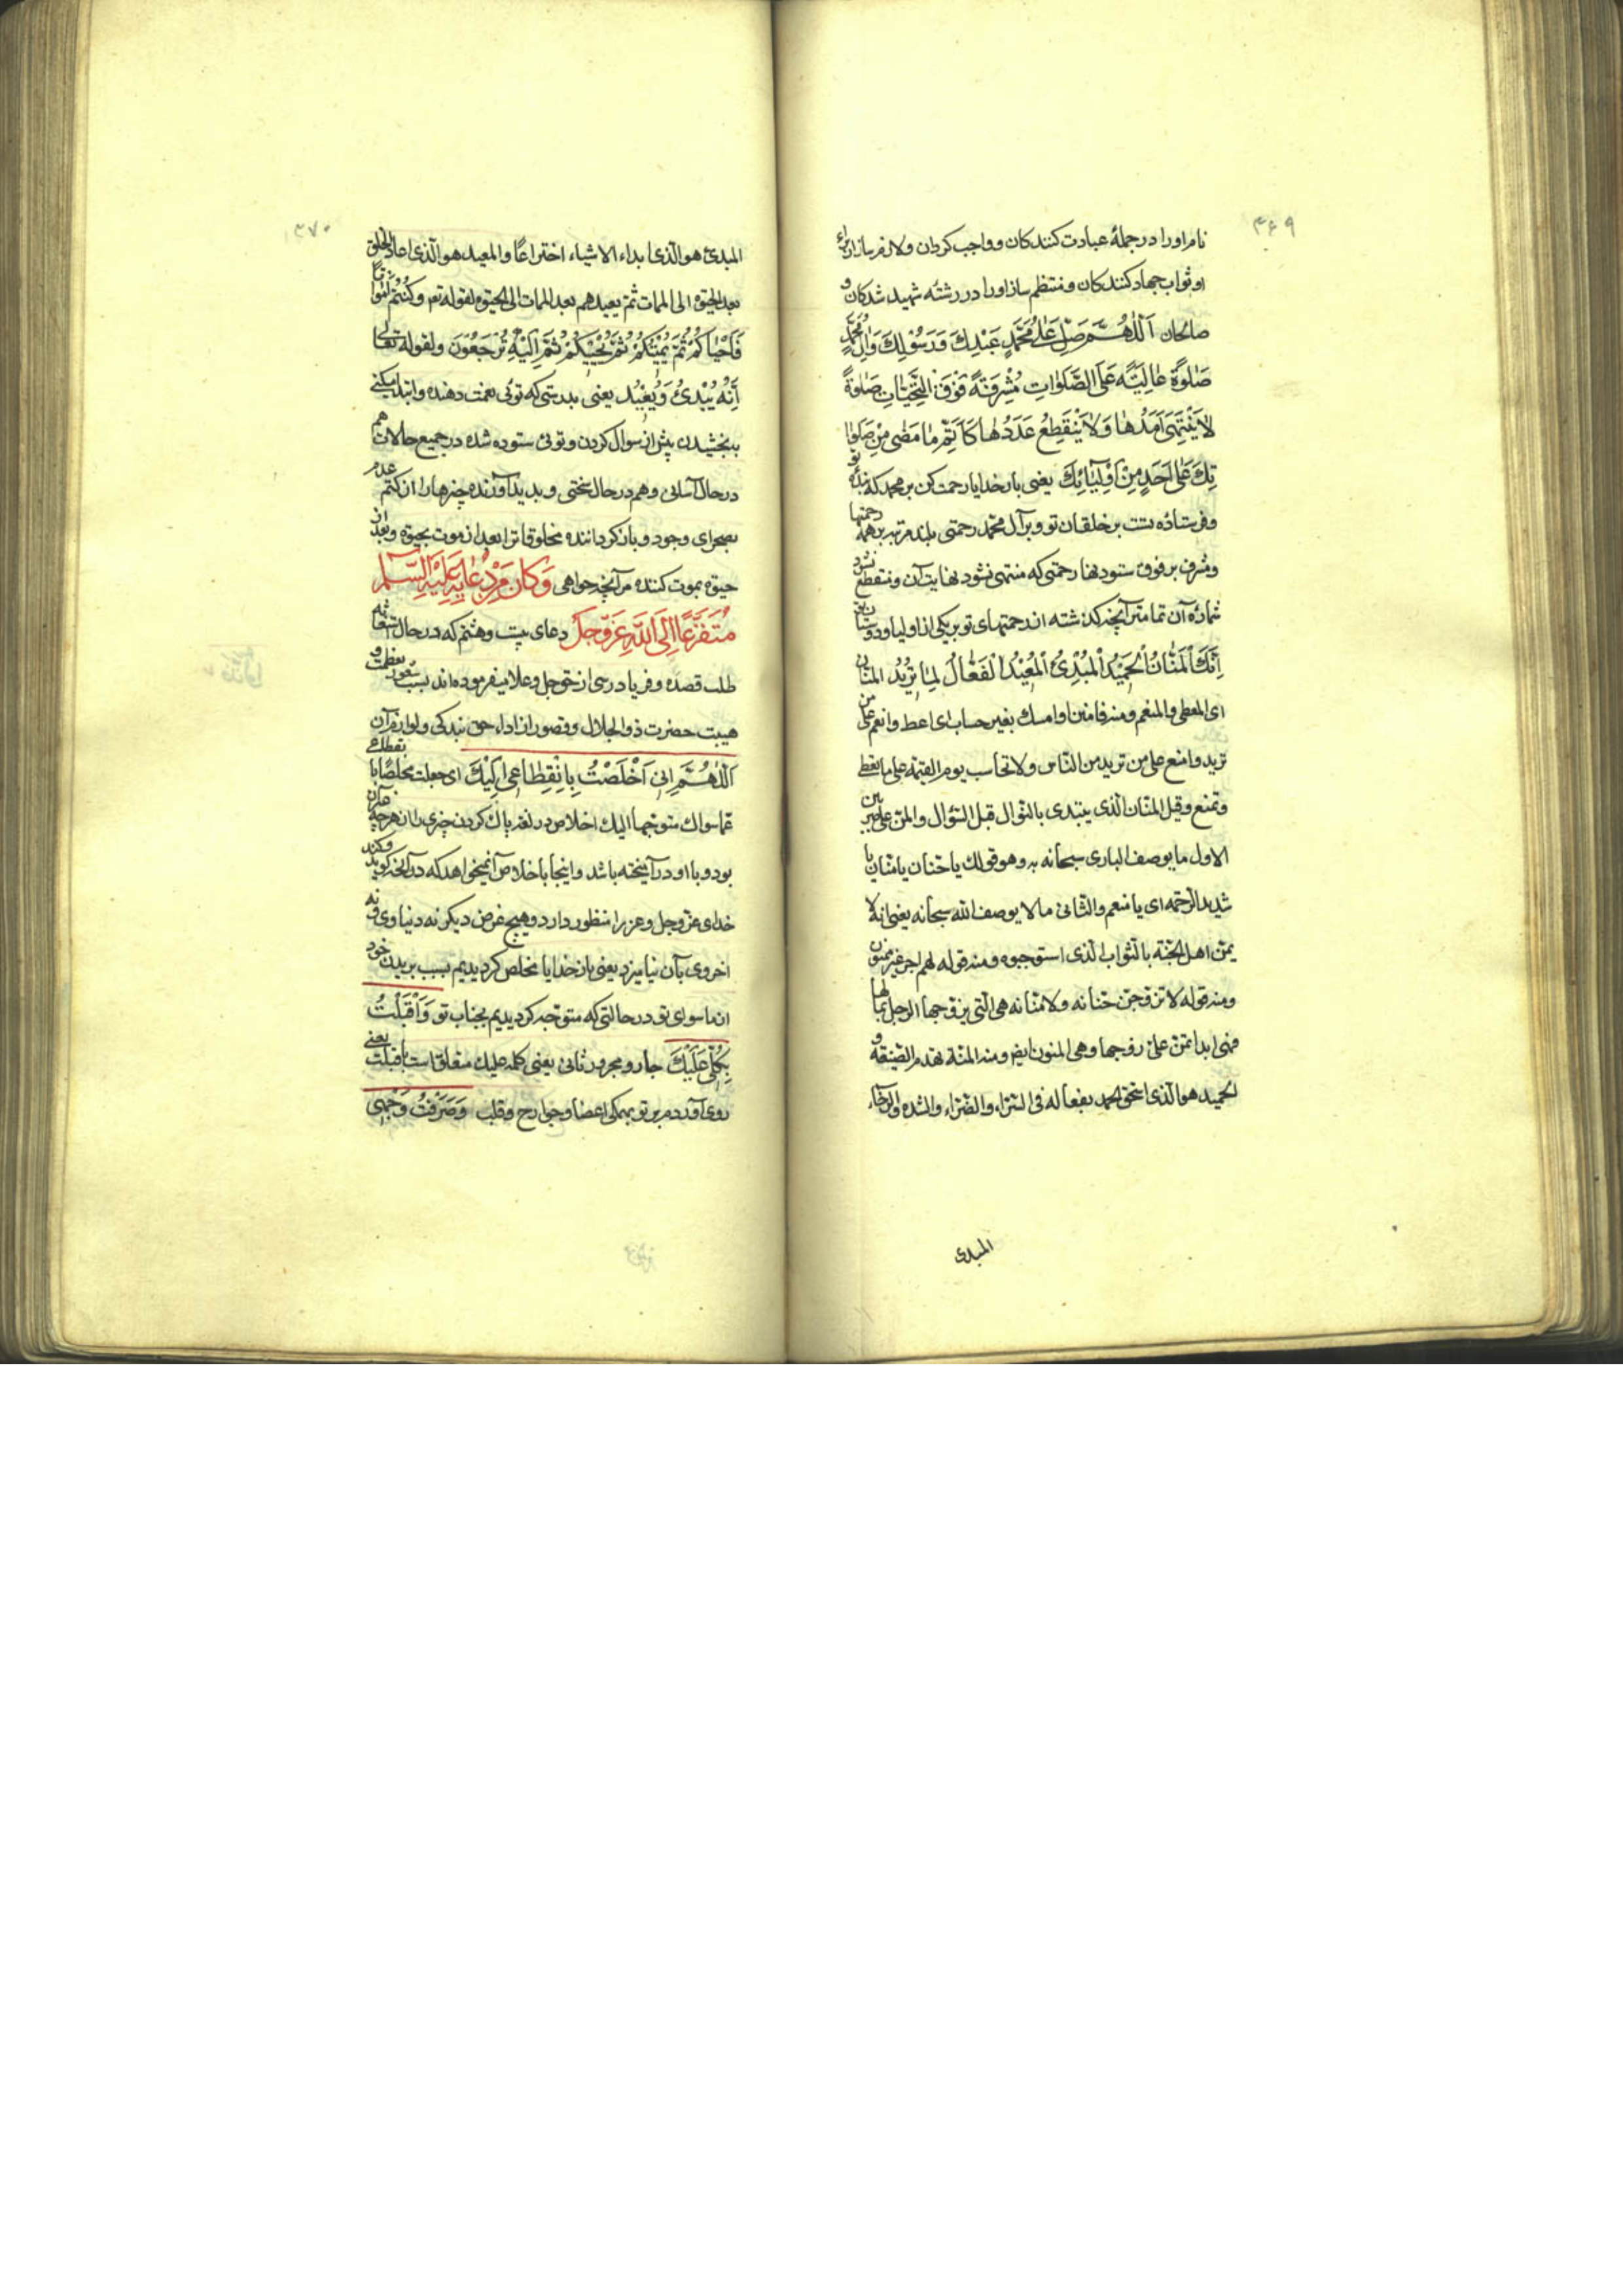 ۴۶۹
نام او را در جملهٔ عبادت کنندکان و واجب کردان و لازم ساز از برای
او ثواب جهاد کنندکان و منتظم ساز او را در رشتهٔ شهید شدکان و
صالحان اَللّٰهُمَّ صَلِّ عَلٰى مُحَمَّدٍ عَبْدِكَ وَرَسُوْلِكَ وَاٰلِ مُحَمَّدٍ
صَلٰوةً عٰالِيَةً عَلَى الصَّلَوٰاتِ مُشْرِفَةً فَوْقَ التَّحِيّٰاتِ صَلٰوةً
لاٰ يَنْتَهِى اَمَدُهٰا وَلاٰ يَنْقَطِعُ عَدَدُهٰا كَاَتَمِّ مٰا مَضٰى مِنْ صَلَوٰا
تِكَ عَلٰى اَحَدٍ مِنْ اَوْلِيٰائِكَ یعنی بار خدایا رحمت کن بر محمد که بندهٔ تو
و فرستادهٔ تست بر خلقان تو و بر آل محمد رحمتی بلند مرتبه بر همه رحمتها
و مشرف بر فوق ستودنها رحمتی که منتهی نشود نهایت آن و منقطع نشود
شمارهٔ آن تمامتر آنچه کذشته از رحمتهای تو بر یکی از اولیا و دوستان تو
اِنَّكَ الْمَنّٰانُ الْحَمِيْدُ الْمُبْدِئُ الْمُعِيْدُ الْفَعّٰالُ لِمٰا تُرِيْدُ المنان
ای المعطی والمنعم ومنه فامنن او امسک بغیر حساب ای اعط وانعم علی من
ترید وامنع علی من ترید من الناس ولا تحاسب یوم القیمة علی ما تعطی
وتمنع وقیل المنان الذی یبتدی بالنوال قبل السؤال والمن علی ضربین
الاول ما یوصف الباری سبحانه به وهو قولک یا حنان یا منان یا
شدید الرحمة ای یا منعم والثانی ما لا یوصف الله سبحانه یعنی انه لا
یمن اهل الجنة بالثواب الذی استوجبوه ومنه قوله لهم اجر غیر ممنون
ومنه قوله لا تزوجن حنانه ولا منانه هی التی یزوجها الرجل لمالها
فهی ابدا تمن علی زوجها وهی المنون ایضا ومنه المنة تهدم الصنیعة و
الحمید هو الذی استحق الحمد بفعاله فی السراء والضراء والشدة والرخاء
المبدی
۴۷۰
المبدئ هو الذی ابداء الاشیاء اختراعًا والمعید هو الذی اعاد الخلق
بعد الحیوة الی الممات ثم یعیدهم بعد الممات الی الحیوة لقوله تع وَكُنْتُمْ اَمْوٰاتًا
فَاَحْيٰاكُمْ ثُمَّ يُمِيْتُكُمْ ثُمَّ يُحْيِيْكُمْ ثُمَّ اِلَيْهِ تُرْجَعُوْنَ ولقوله تعالی
اِنَّهُ يُبْدِئُ وَيُعِيْدُ یعنی بدرستی که توئی نعمت دهنده و ابتدا میکنی
ببخشیدن پیش از سوال کردن و توئی ستوده شده در جمیع حالات هم
در حال آسانی و هم در حال سختی و پدید آورنده چیزها را از کتم عدم
بصحرای وجود و بازکرداننده مخلوقاترا بعد از موت بحیوة و بعد از
حیوة بموت کننده مر آنچه خواهی وَكَانَ مِنْ دُعٰائِهِ عَلَيْهِ السَّلٰم
مُتَفَزِّعًا اِلَى اللّٰهِ عَزَّ وَجَلَّ دعای بیست و هشتم که در حال
طلب قصده و فریادرسی از حق جل و علا میفرموده‌اند بسبب شعور بعظمت و
هیبت حضرت ذوالجلال و قصور از اداء حق بندکی و لوازم آن
اَللّٰهُمَّ اِنِّىْ اَخْلَصْتُ بِانْقِطٰاعِىْ اِلَيْكَ ای جعلت مخلصًا بانقطاعی
عما سواک متوجها الیک اخلاص در لغة پاک کردن چیزی را از هر چه
بود و با او در آمیخته باشد و اینجا با خلاص آن میخواهد که در آنچه کوید و کند
خدای عز و جل و عز را منظور دارد و هیچ غرض دیکر نه دنیاوی و نه
اخروی بآن نیامیزد یعنی بار خدایا مخلص کردیدیم بسبب بریدن خود
از ما سوای تو در حالتی که متوجه کردیدیم بجناب تو وَاَقْبَلْتُ
بِكُلِّىْ عَلَيْكَ جار و مجرور ثانی یعنی کلمه علیک متعلق است باقبلت یعنی
روی آوردم بر تو بهمکی اعضا و جوارح و قلب وَصَرَفْتُ وَجْهِى